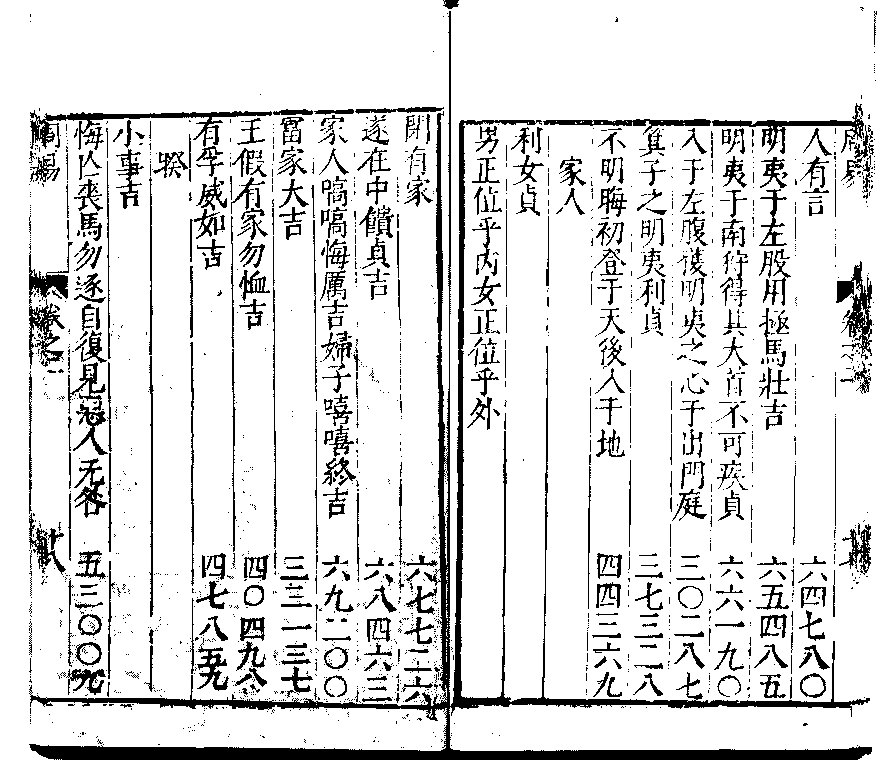 周易
卷之二
人有言 六四七八〇
明夷于左股用拯馬壯吉 六五四八五
明夷于南狩得其大首不可疾貞 六六一九〇
入于左腹獲明夷之心于出門庭 三〇二八七
箕子之明夷利貞 三七三二八
不明晦初登于天後入于地 四四三六九
家人
利女貞
男正位乎內女正位乎外
閑有家 六七七二六
遂在中饋貞吉 六八四六三
家人嗃嗃悔厲吉婦子嘻嘻終吉 六九二〇〇
富家大吉 三三一三七
王假有家勿恤吉 四〇四九八
有孚威如吉 四七八五九
睽
小事吉
悔亾喪馬勿逐自復見惡人无咎 五三〇〇九
周易
卷之二
十八